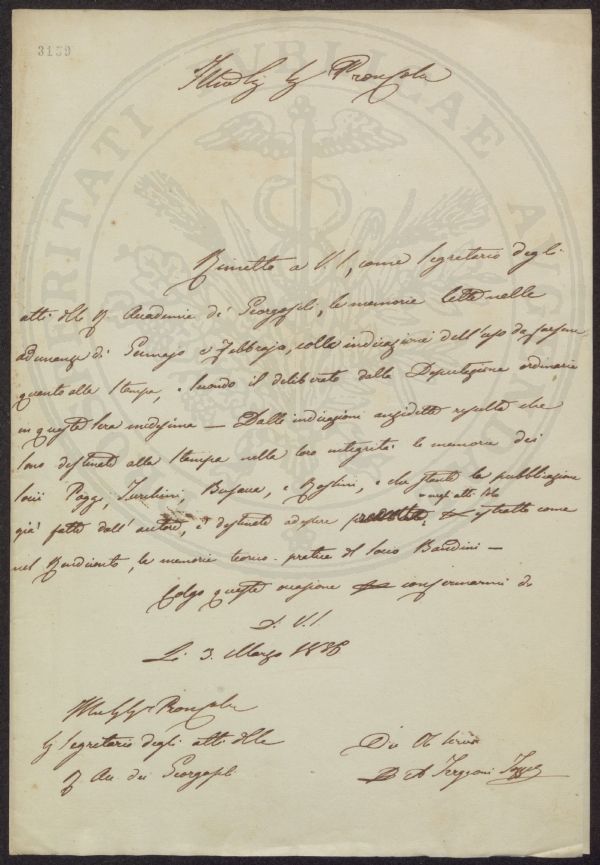 3139
Rimetto a V.S., come Segretario degli
atti della R. Accademia de' Georgofili, le memorie lette nelle
adunanze di Gennajo e Febbrajo, colla indicazione dell'uso da farsene
quanto alla stampa, e secondo il deliberato dalla Deputazione ordinaria
in questa sera medesima — Dalle indicazioni anzidette resulta che
sono destinate alla stampa nella loro integrità le memorie dei
Socii Poggi, e che stante la pubblicazione
già fatta dall'autore, è destinata ad essere estratta come
nel Rendiconto, la memoria teorico-pratica del Socio Bandini —
Colgo questa occasione confermarmi di
D. V.S.
Li 3. Marzo 1836
Segretario degli atti della
R. Acc. dei Georgofili
A Targioni